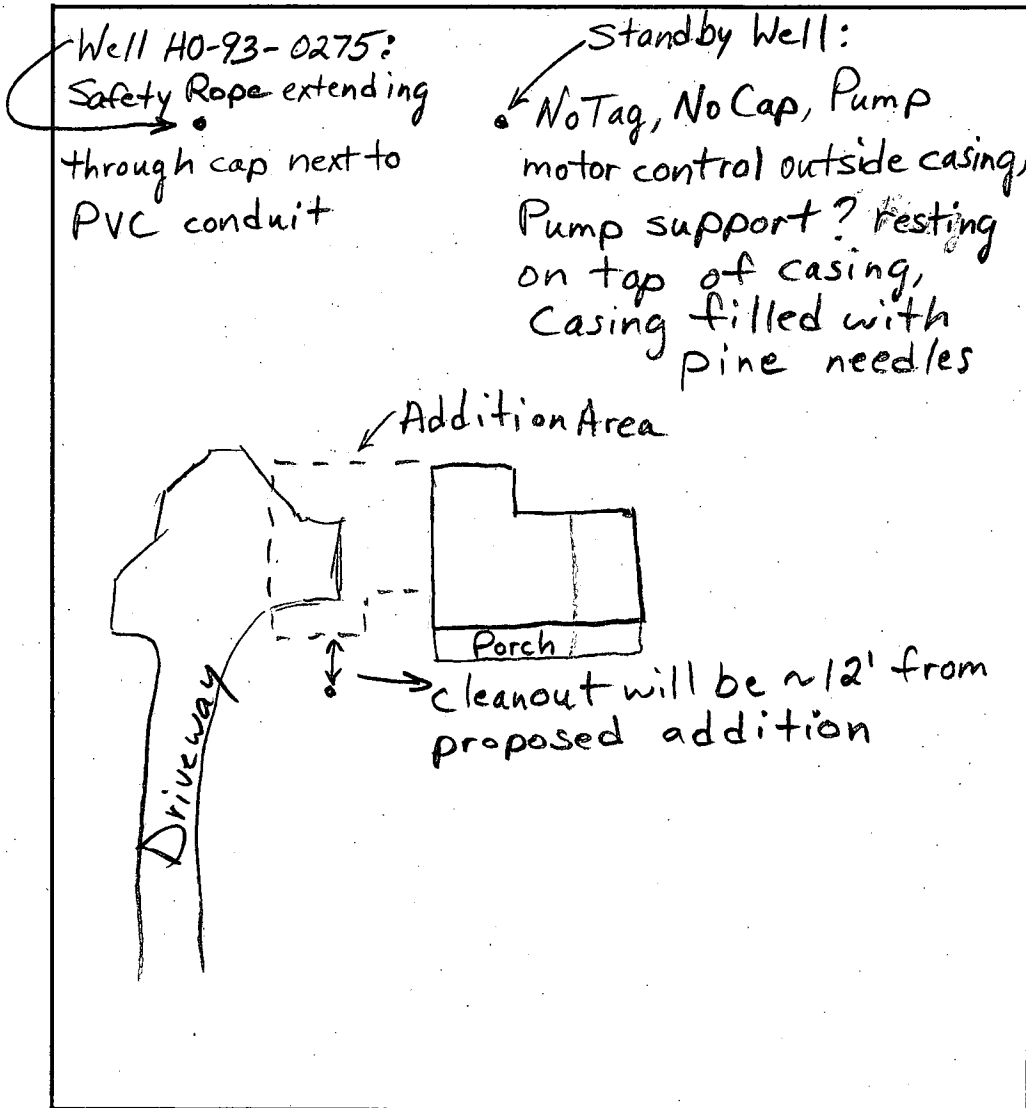 Well HO-93-0275:
Safety Rope extending
through cap next to
PVC conduit
Standby Well:
No Tag, No Cap, Pump
motor control outside casing,
Pump support? resting
on top of casing,
Casing filled with
pine needles
Addition Area
Porch
cleanout will be ~12' from
proposed addition
Driveway